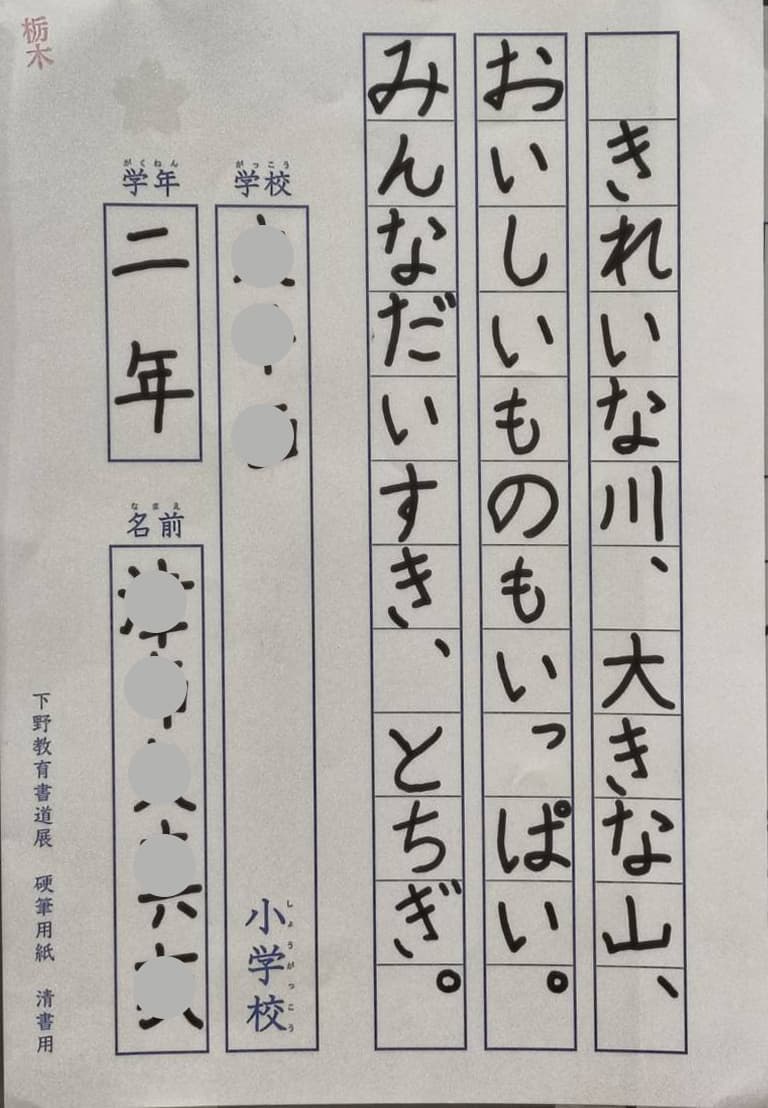 きれいな川、大きな山、
おいしいものもいっぱい。
みんなだいすき、とちぎ。
がっこう
学校
しょうがっこう
小学校
がくねん
学年
二年
なまえ
名前
栃木
下野教育書道展 硬筆用紙 清書用